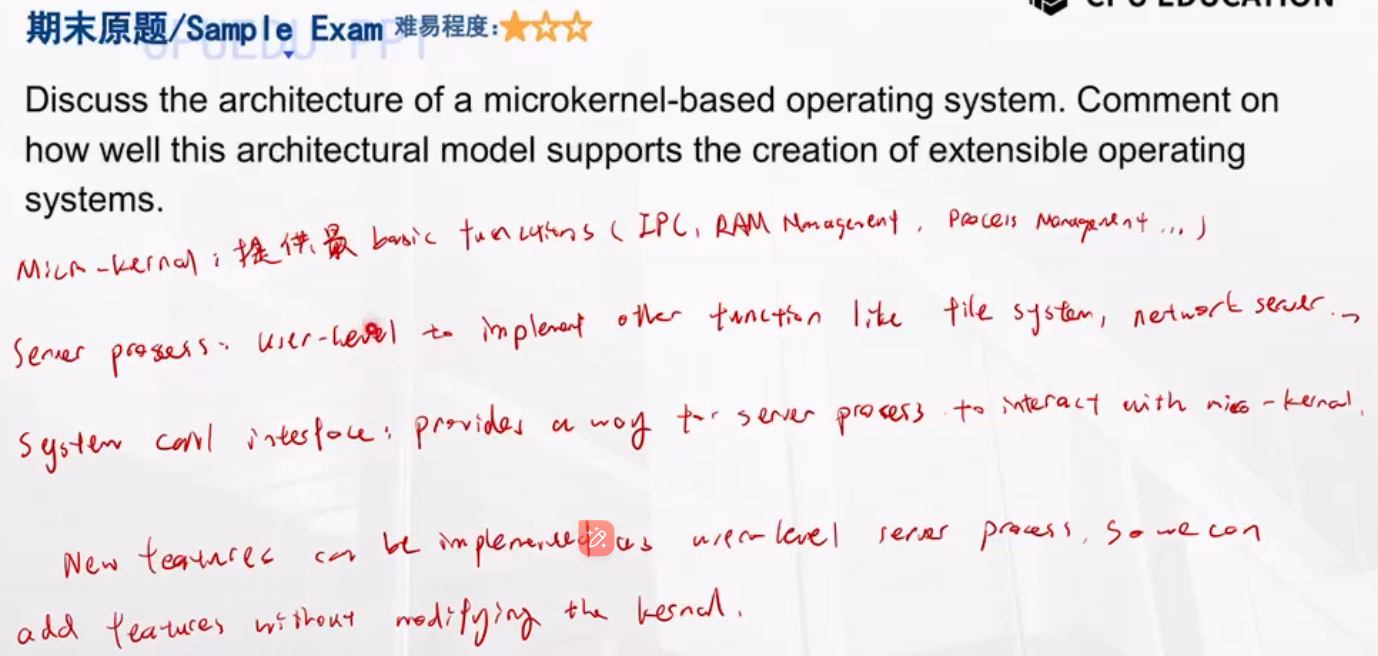 CPU EDUCATION
期末原题/Sample Exam 难易程度:
Discuss the architecture of a microkernel-based operating system. Comment on
how well this architectural model supports the creation of extensible operating
systems.
Micro-kernal: 提供最 basic functions (IPC, RAM Management, Process Management ...)
Server process: user-level to implement other function like file system, network server..
System call interface: provides a way for server process to interact with micro-kernal.
New features can be implemented as user-level server process, so we can
add features without modifying the kernal.